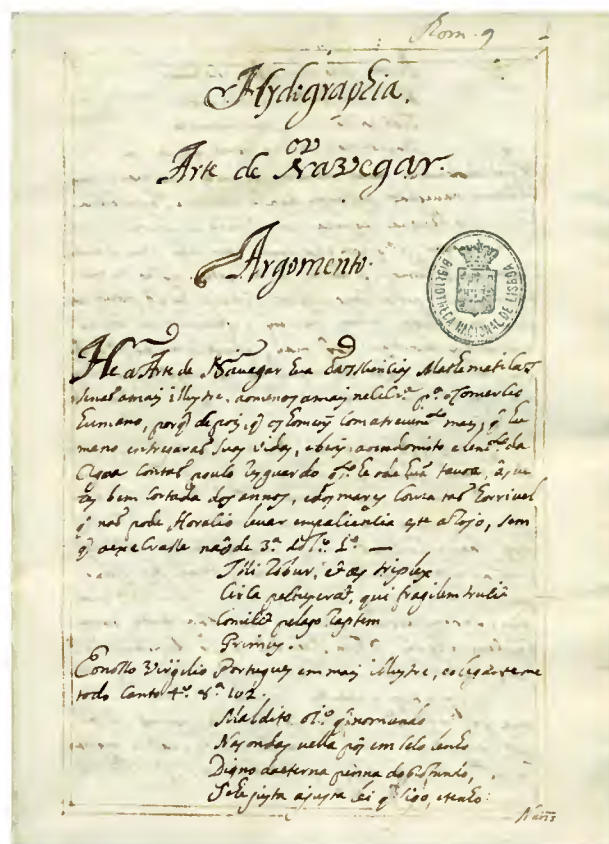 Rom. 9
Hydrographia.
ou
Arte de Navegar.
Argomento.
BIBLIOTHECA NACIONAL DE LISBOA
He a Arte de Navegar hua das sciencias Mathematicas
senaõ a mais illustre, a o menos a mais necess.ª p.ª o comercio
humano, porq̃ depois, q̃ os homens com atrevim.to mais, q̃ hu
mano entregaraõ suas vidas, e bens ao indomito elem.to da
Agoa
bem cortada dos annos, e dos mares
q̃ naõ pode Horacio levar em paciencia este arrojo, sem
q̃ ode 3.ª do l.º 1.º
Illi robur, et æs triplex
Circa pectus erat, qui fragilem truci
Comisit pelago ratem
Primus.
E o nosso Virgilio Portugues em mais illustre, e elegante me
todo Canto 4.º 8.ª 102.
Maldito o pr.º q̃ no mundo
Nas ondas vella pos em seco lenho
Digno da eterna penna do profundo,
Se he justa a justa lei q̃ sigo, e tenho: